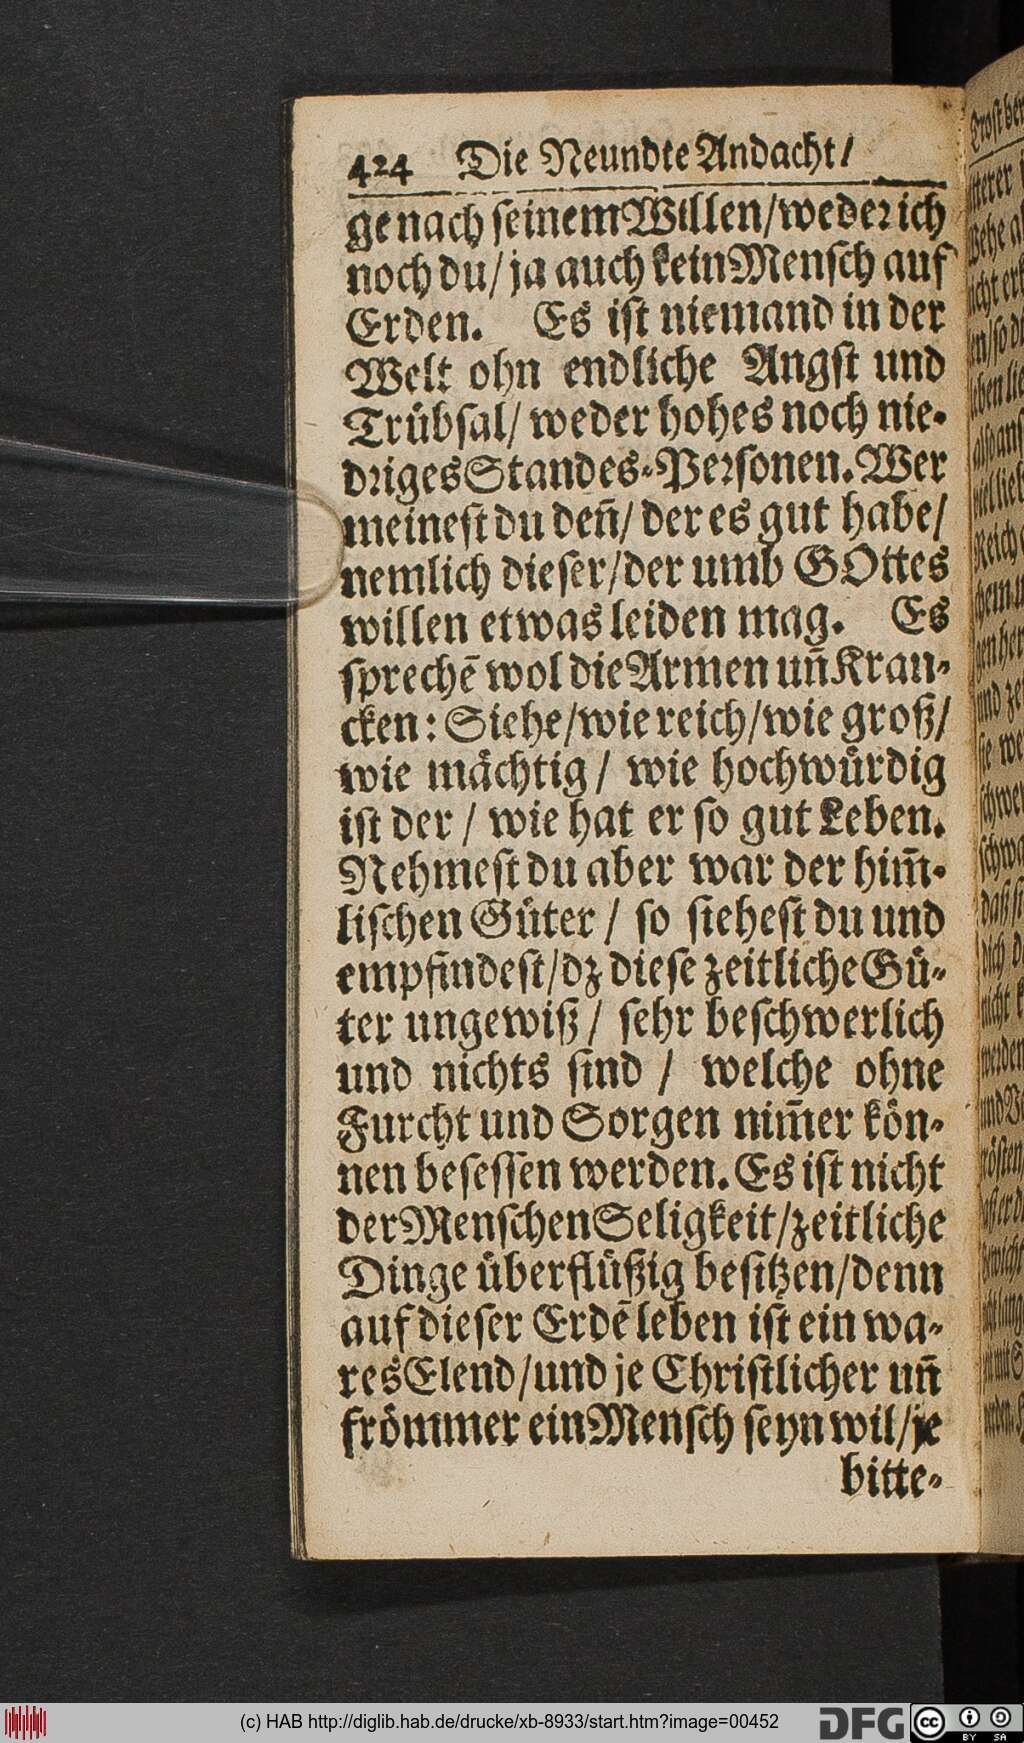 424 Die Neundte Andacht/
ge nach seinem Willen/weder ich
noch du/ ja auch kein Mensch auf
Erden. Es ist niemand in der
Welt ohn endliche Angst und
Trübsal/ weder hohes noch nie-
driges Standes-Personen. Wer
meinest du deñ/ der es gut habe/
nemlich dieser/der umb GOttes
willen etwas leiden mag. Es
sprechē wol die Armen uñ Kran-
cken: Siehe/wie reich/wie groß/
wie mächtig/ wie hochwürdig
ist der / wie hat er so gut Leben.
Nehmest du aber war der him̄-
lischen Güter / so siehest du und
empfindest/dz diese zeitliche Gü-
ter ungewiß/ sehr beschwerlich
und nichts sind / welche ohne
Furcht und Sorgen nim̄er kön-
nen besessen werden. Es ist nicht
der Menschen Seligkeit/zeitliche
Dinge überflüßig besitzen/denn
auf dieser Erdē leben ist ein wa-
res Elend/und je Christlicher uñ
frömmer ein Mensch seyn wil/je
bitte-
(c) HAB http://diglib.hab.de/drucke/xb-8933/start.htm?image=00452
DFG
cc BY SA